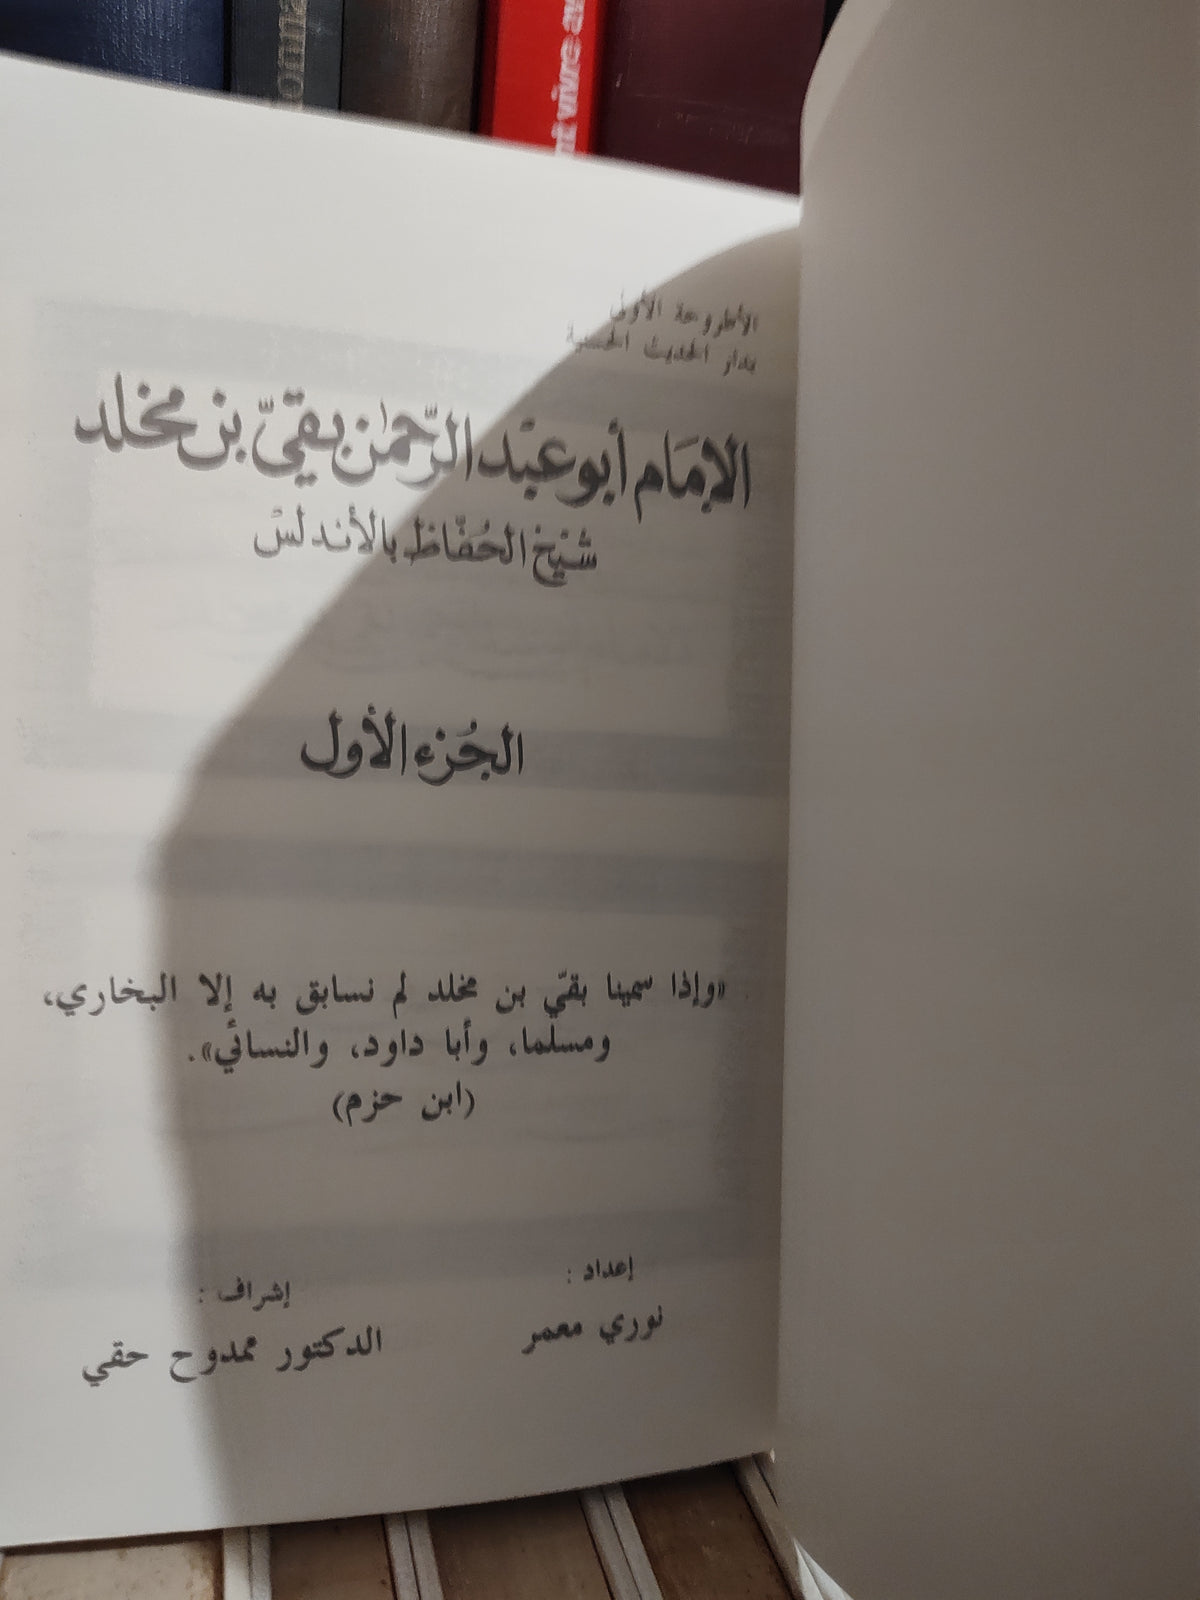 onna
nt vivre au
الأطروحة الأولى
بدار الحديث الحسنية
الإمَام أبو عبْد الرّحمٰن بقيّ بن مخلد
شيْخ الحُفّاظ بالأندلسْ
الجُزء الأول
«وإذا سمينا بقيّ بن مخلد لم نسابق به إلا البخاري،
ومسلما، وأبا داود، والنسائي».
(ابن حزم)
إعداد :
نوري معمر
إشراف :
الدكتور ممدوح حقي